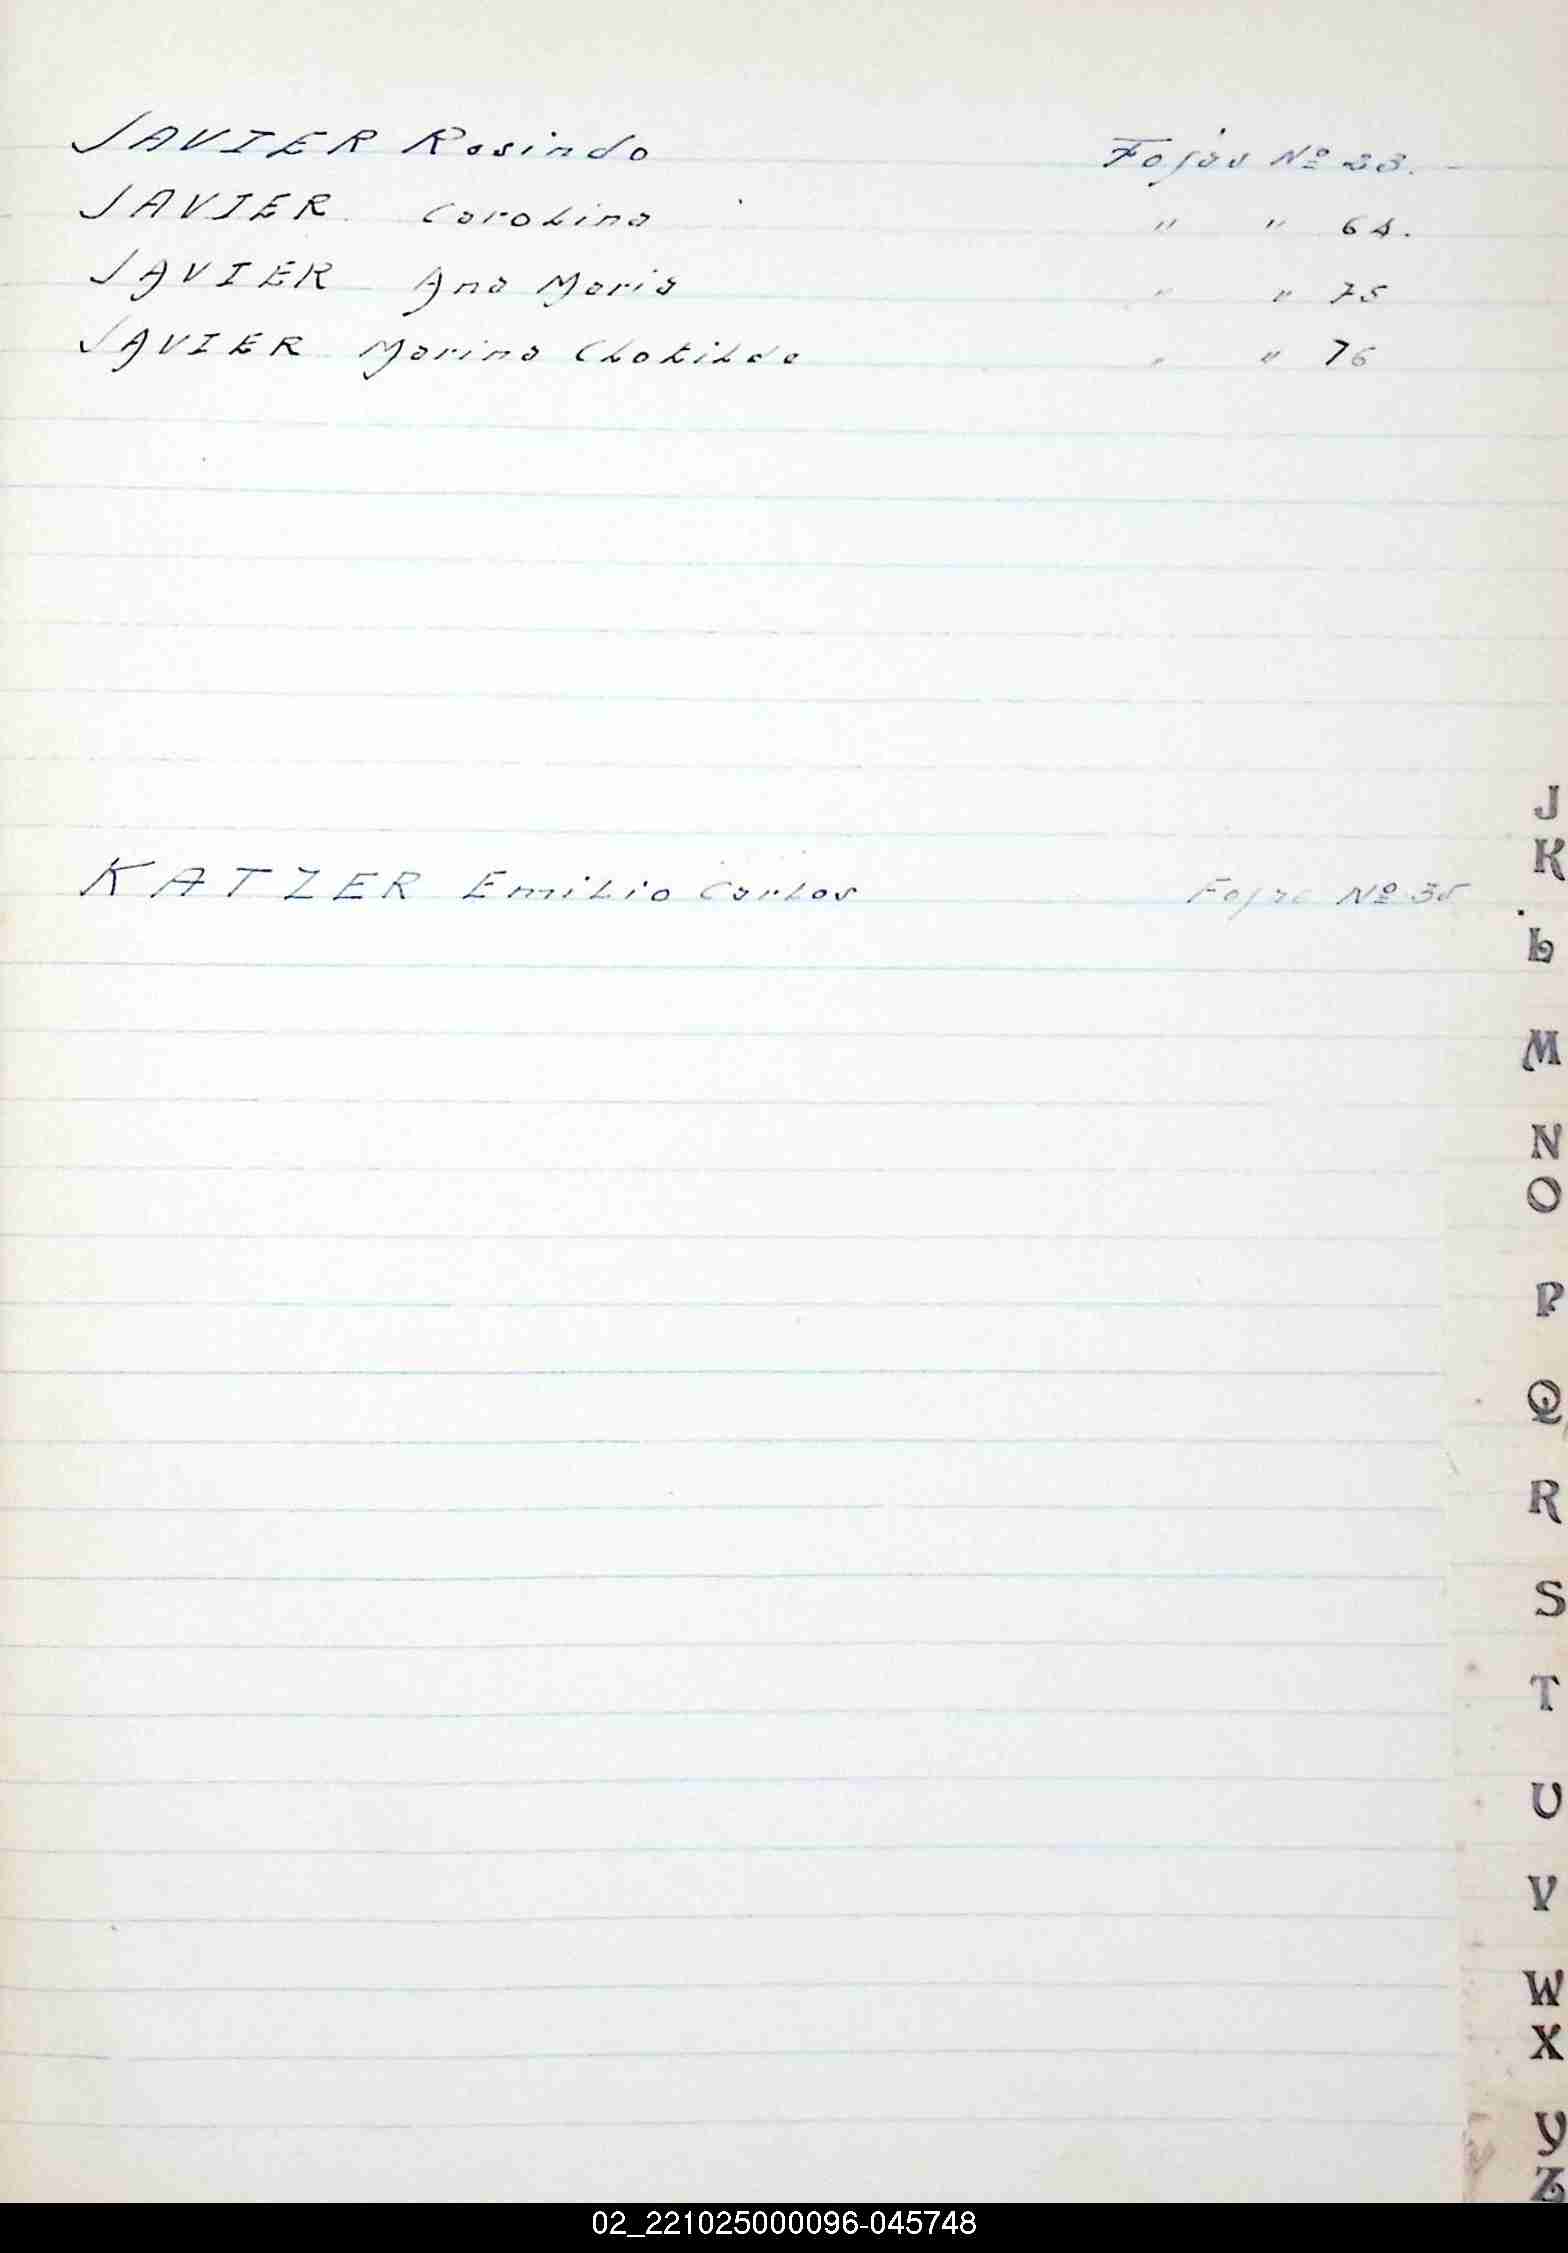 JAVIER Rosindo Fojas Nº 23.
JAVIER Carolina " " 64.
JAVIER Ana Maria " " 75
JAVIER Marina Clotilde " " 76
KATZER Emilio Carlos Fojas Nº 35
J
K
L
M
N
O
P
Q
R
S
T
U
V
W
X
Y
Z
02_221025000096-045748